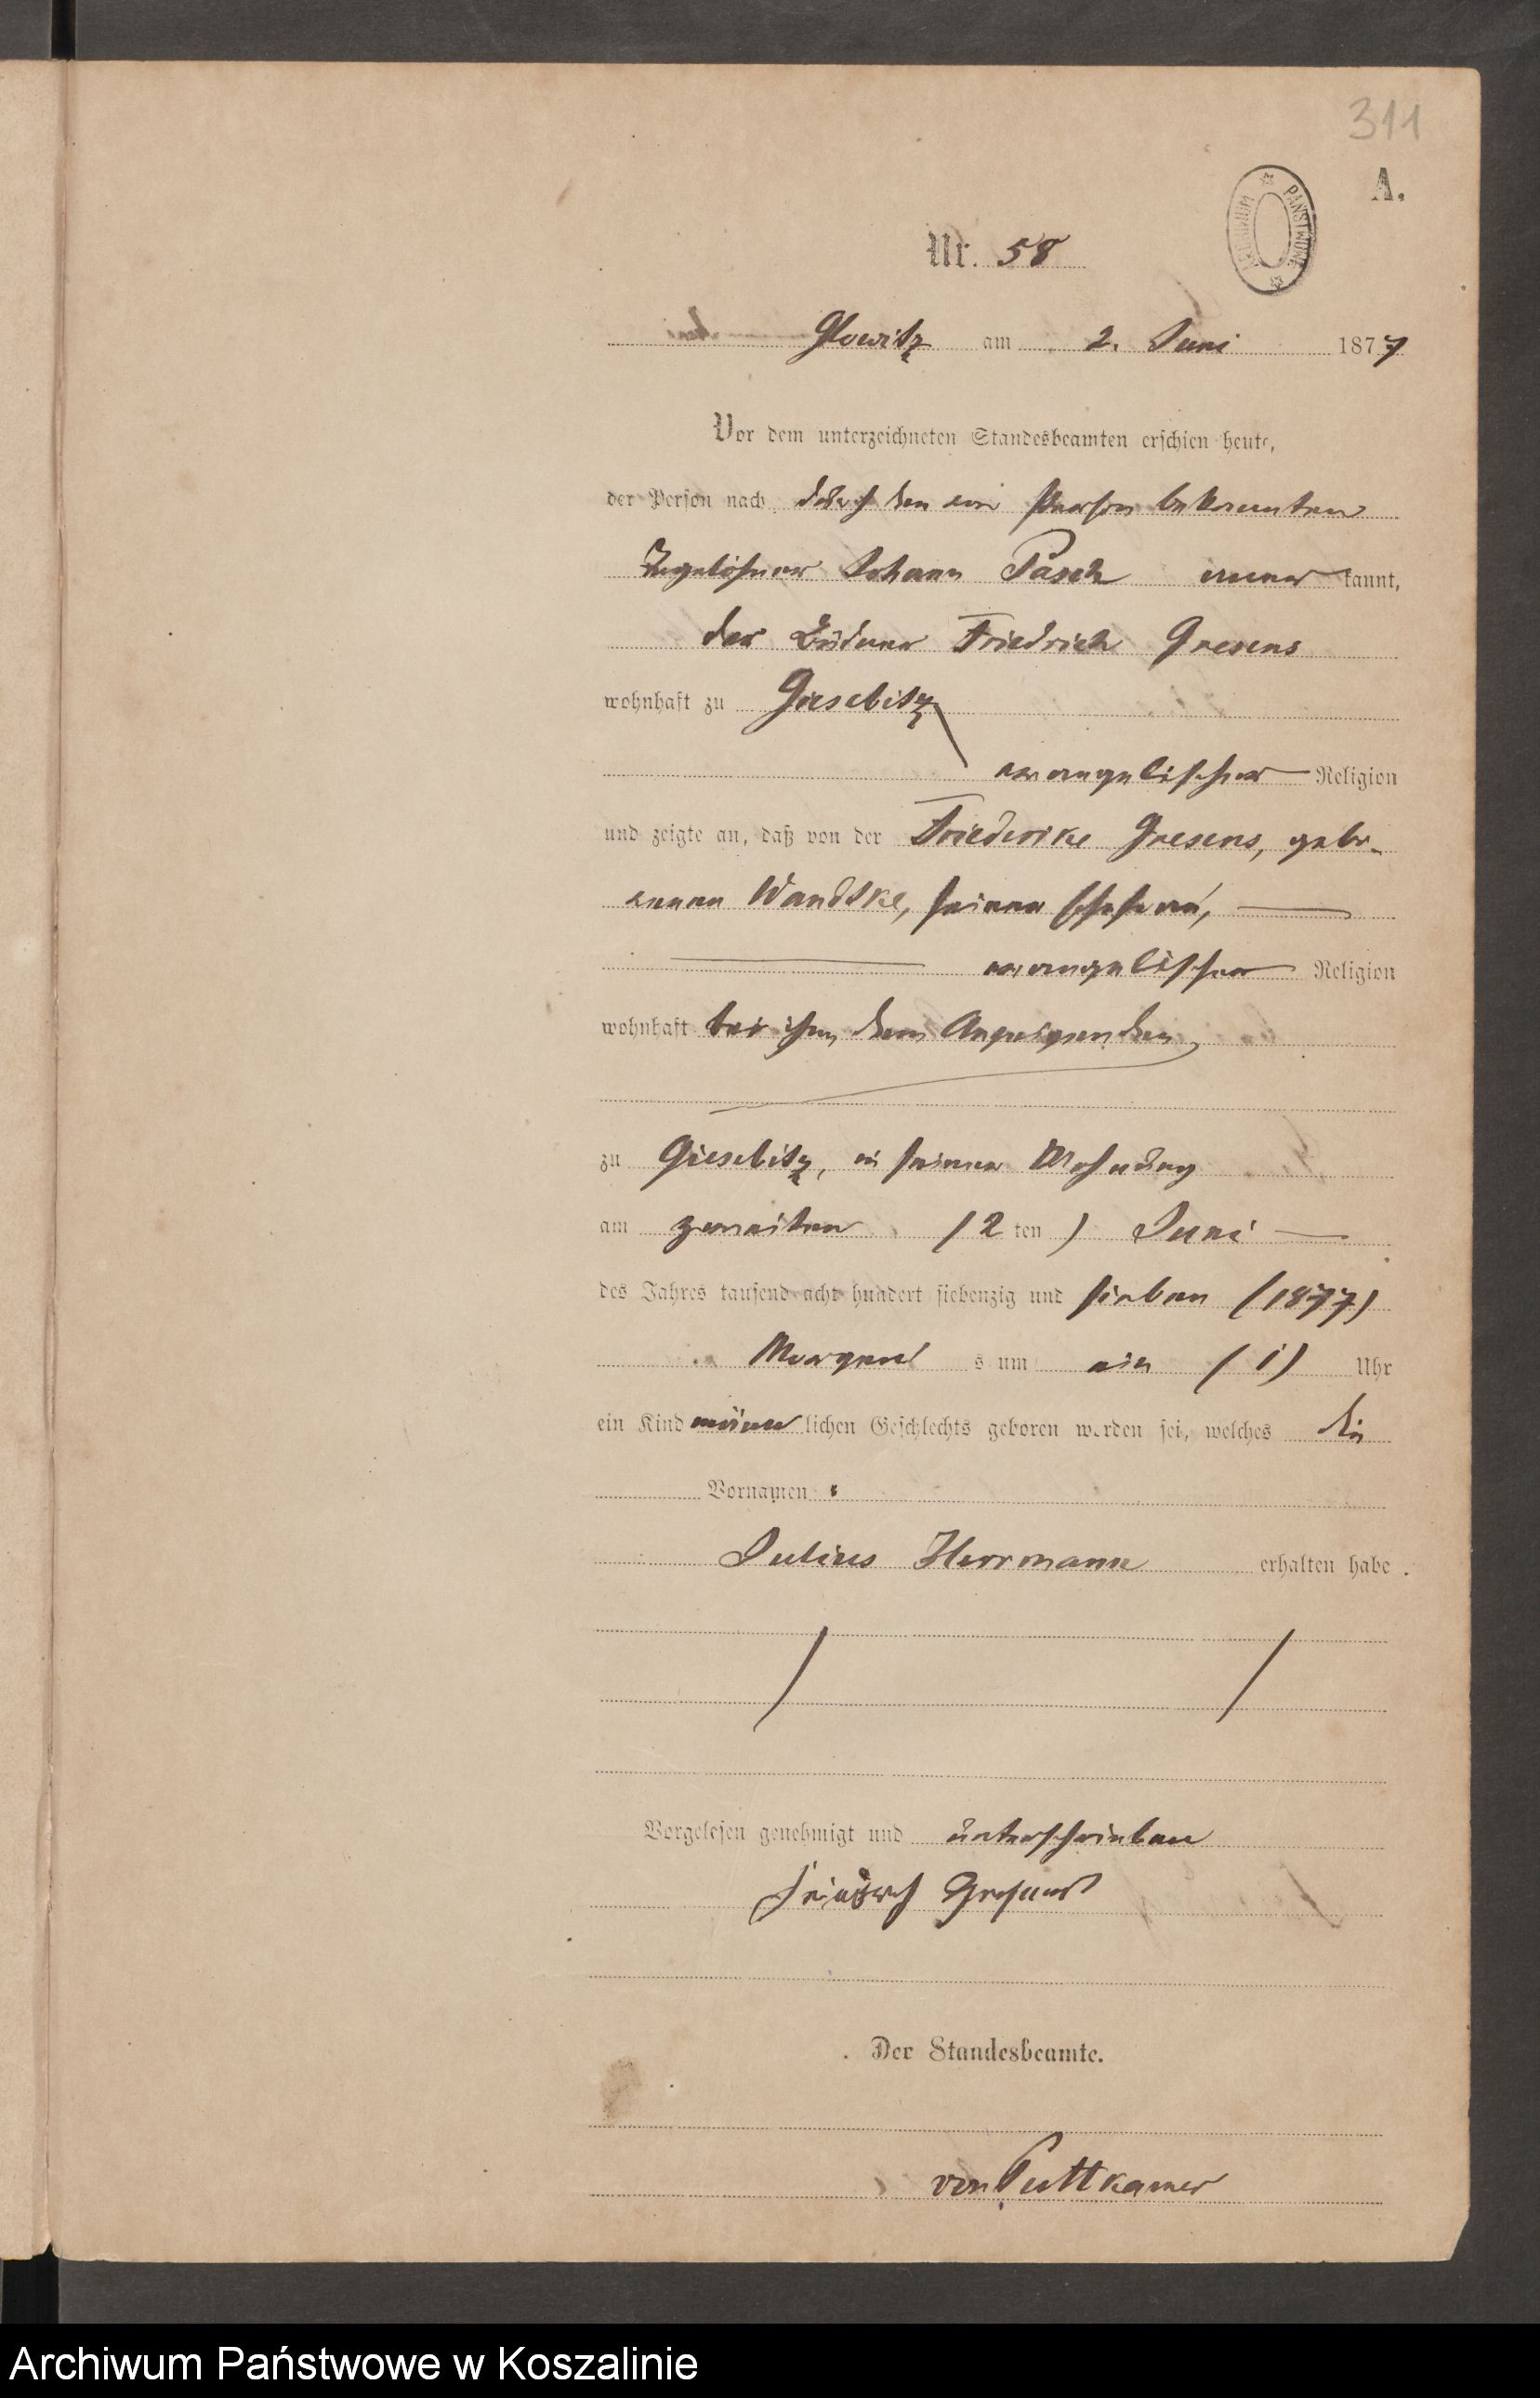 311
A.
PAŃSTWOWE
ARCHIWUM
Nr. 58
Glowitz am 2. Juni 1877
Vor dem unterzeichneten Standesbeamten erschien heute,
der Person nach durch den von Person bekannten
Tagelöhner Johann Pasch anerkannt,
der Büdner Friedrich Gresens
wohnhaft zu Giesebitz
evangelischer Religion
und zeigte an, daß von der Friederike Gresens, gebo-
renen Wandtke, seiner Ehefrau,
evangelischer Religion
wohnhaft bei ihm, dem Anzeigenden,
zu Giesebitz, in seiner Wohnung
am zweiten (2 ten) Juni
des Jahres tausend acht hundert siebenzig und sieben (1877)
Morgens um ein (1) Uhr
ein Kind männlichen Geschlechts geboren worden sei, welches die
Vornamen:
Julius Herrmann erhalten habe.
Vorgelesen genehmigt und unterschrieben
Gresens
Der Standesbeamte.
von Puttkamer
Archiwum Państwowe w Koszalinie